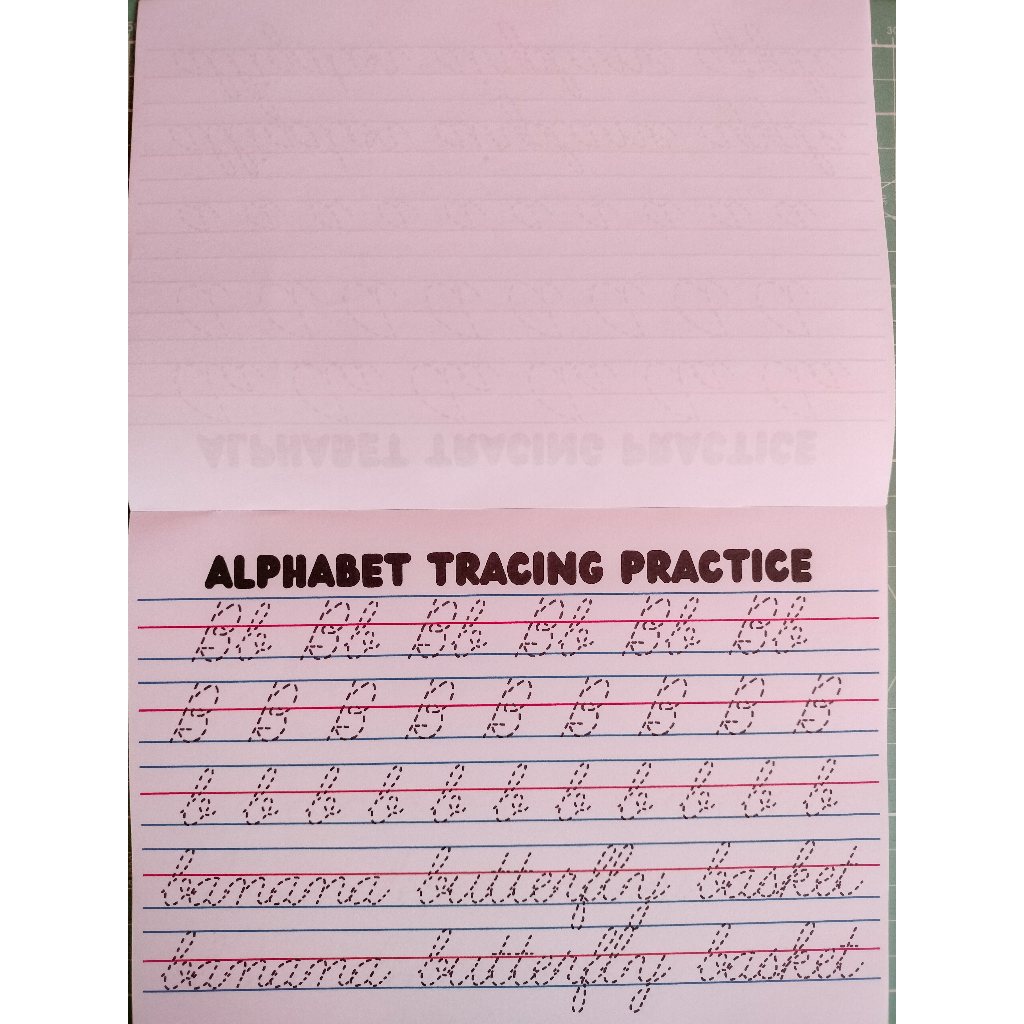 ALPHABET TRACING PRACTICE
Bb Bb Bb Bb Bb Bb
B B B B B B B B B
b b b b b b b b b b b
banana butterfly basket
banana butterfly basket